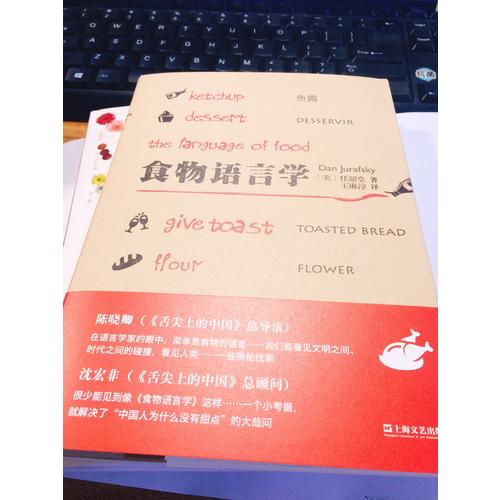 ketchup 鱼露
dessert DESSERVIR
the language of food
Dan Jurafsky
食物语言学
[美] 任韶堂 著
王琳淳 译
give toast TOASTED BREAD
flour FLOWER
陈晓卿（《舌尖上的中国》总导演）
在语言学家的眼中，菜单是食物的语言……我们能看见文明之间、
时代之间的碰撞，看见人类……一些隐秘线索
沈宏非（《舌尖上的中国》总顾问）
很少能见到像《食物语言学》这样……一个小考据，
就解决了“中国人为什么没有甜点”的大哉问
上海文艺出版
抗菌